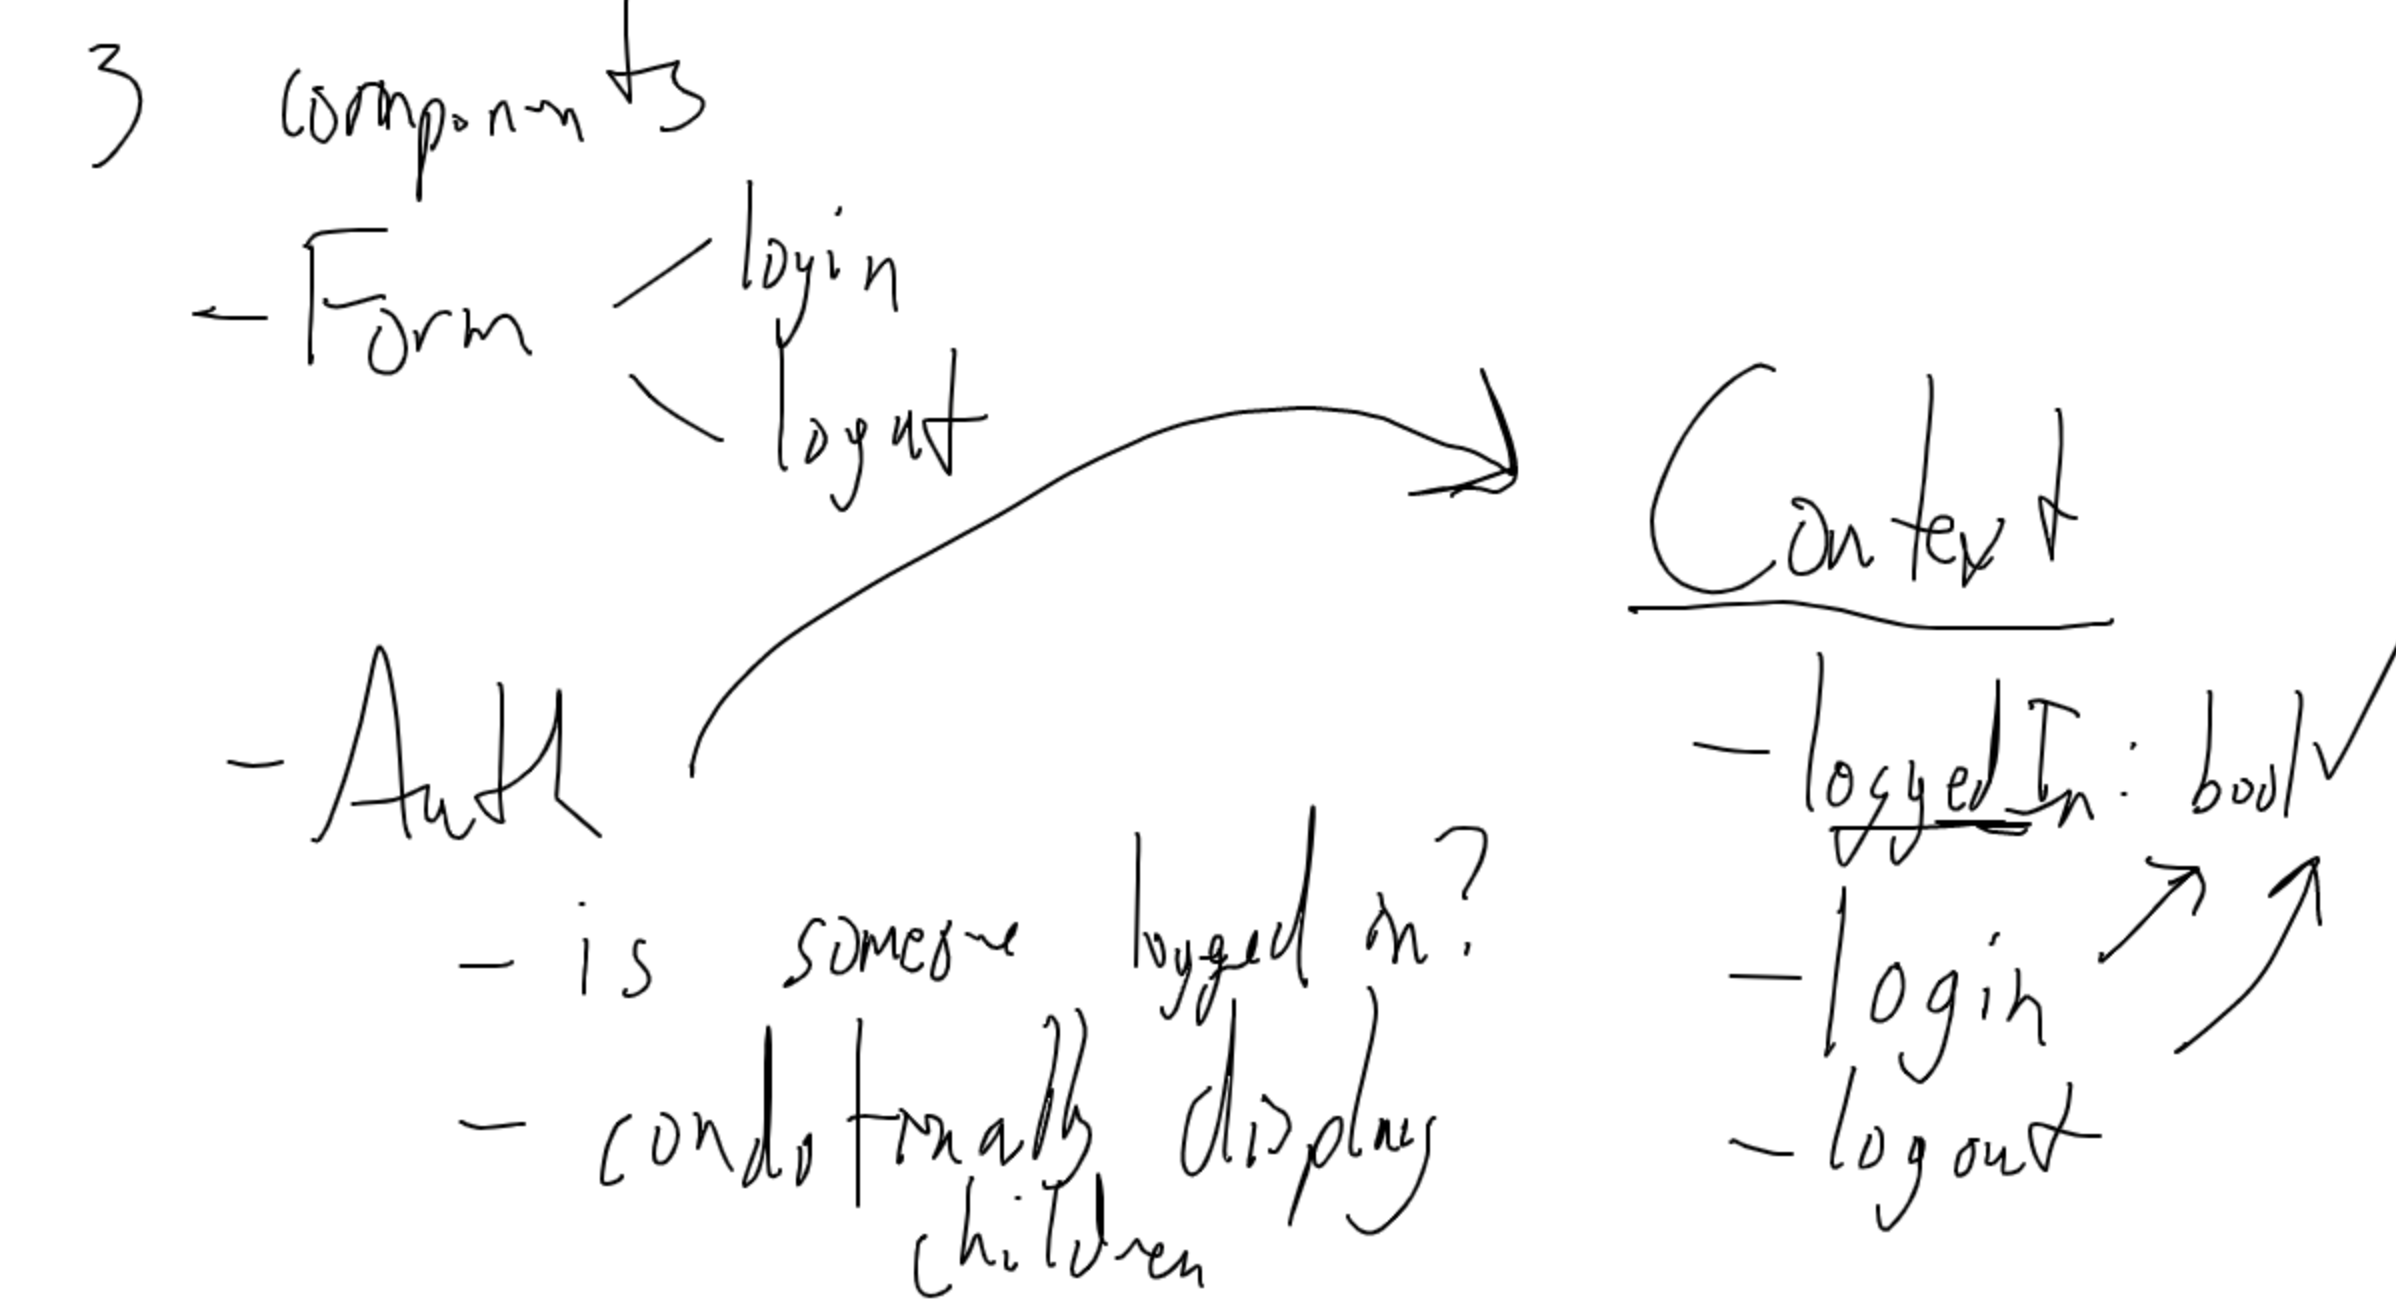 3 components
- Form
login
logout
- Auth
- is someone logged in?
- conditionally display
children
Context
- loggedIn: bool
- login
- logout